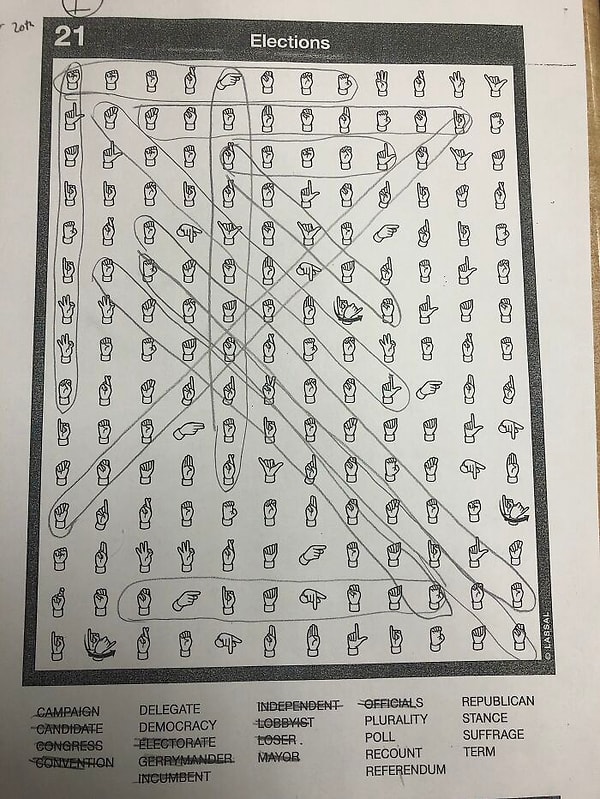 20th
21
Elections
© LASSAL
CAMPAIGN DELEGATE INDEPENDENT OFFICIALS REPUBLICAN
CANDIDATE DEMOCRACY LOBBYIST PLURALITY STANCE
CONGRESS ELECTORATE LOSER POLL SUFFRAGE
CONVENTION GERRYMANDER MAYOR RECOUNT TERM
INCUMBENT REFERENDUM